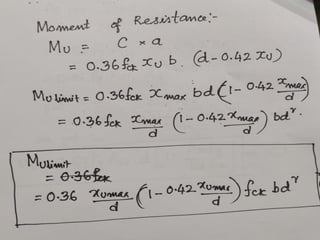 Moment of Resistance:-
Mu = C × a
= 0.36 fck xu b. (d-0.42 xu)
Mu limit = 0.36 fck xmax bd (1- 0.42 xmax/d)
= 0.36 fck xmax/d (1-0.42 xmax/d) bd²
Mulimit
= 0.36fck
= 0.36 xumax/d (1-0.42 xumax/d) fck bd²